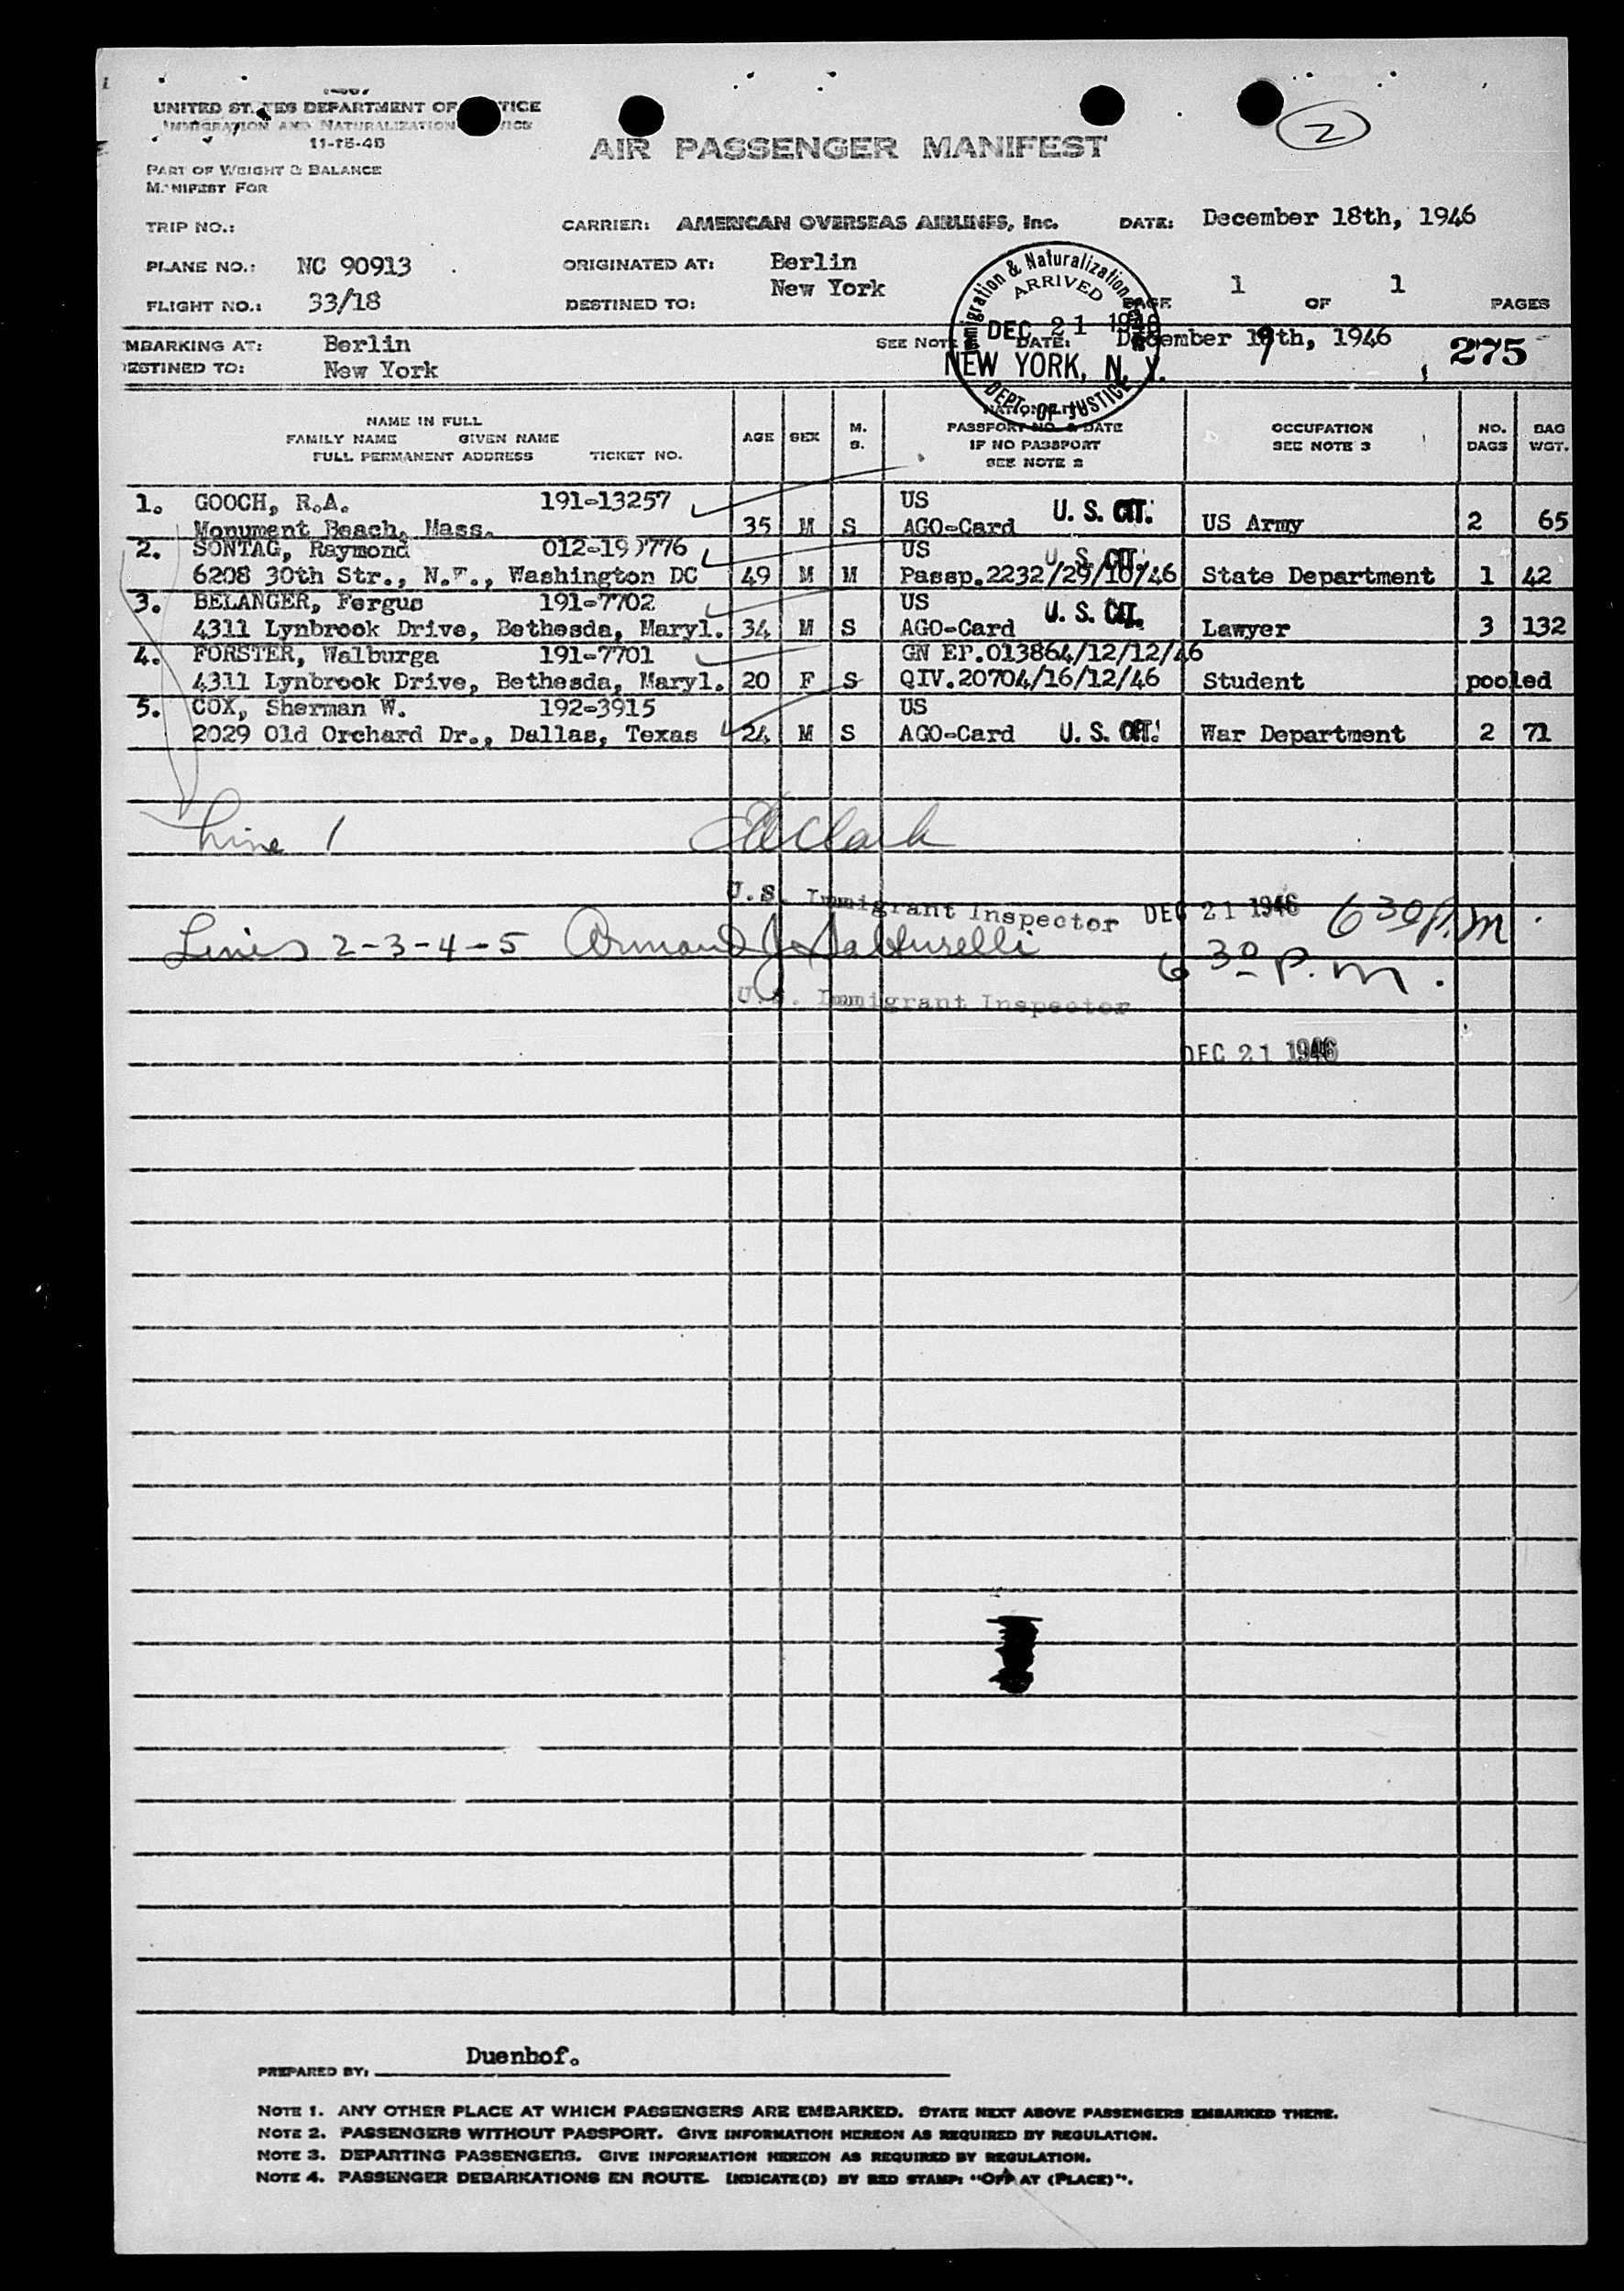 2
UNITED ST TES DEPARTMENT OF TICE
IMMIGRATION AND NATURALIZATION
11-15-46
AIR PASSENGER MANIFEST
PART OF WEIGHT & BALANCE
MANIFEST FOR
TRIP NO.: CARRIER: AMERICAN OVERSEAS AIRLINES, Inc. DATE: December 18th, 1946
PLANE NO.: NC 90913 ORIGINATED AT: Berlin
FLIGHT NO.: 33/18 DESTINED TO: New York PAGE 1 OF 1 PAGES
Immigration & Naturalization
ARRIVED
DEC 21 1946
NEW YORK, N. Y.
DEPT. OF JUSTICE
MBARKING AT: Berlin SEE NOTE DATE: December 19th, 1946 275
ESTINED TO: New York
NAME IN FULL
FAMILY NAME GIVEN NAME
FULL PERMANENT ADDRESS TICKET NO.
AGE SEX M. S.
NATIONALITY
PASSPORT NO. & DATE
IF NO PASSPORT
SEE NOTE 2
OCCUPATION
SEE NOTE 3
NO. BAGS
BAG WGT.
1. GOOCH, R.A. 191-13257 US U. S. CIT.
Monument Beach, Mass. 35 M S AGO-Card US Army 2 65
2. SONTAG, Raymond 012-19 776 US U. S. CIT.
6208 30th Str., N.W., Washington DC 49 M M Passp.2232/29/10/46 State Department 1 42
3. BELANGER, Fergus 191-7702 US U. S. CIT.
4311 Lynbrook Drive, Bethesda, Maryl. 34 M S AGO-Card Lawyer 3 132
4. FORSTER, Walburga 191-7701 GN EP.013864/12/12/46
4311 Lynbrook Drive, Bethesda, Maryl. 20 F S QIV.20704/16/12/46 Student pooled
5. COX, Sherman W. 192-3915 US
2029 Old Orchard Dr., Dallas, Texas 24 M S AGO-Card U. S. CIT. War Department 2 71
Line 1 Clark
U.S. Immigrant Inspector DEC 21 1946 6 30 P.M.
Lines 2-3-4-5 Armand J 6 30 P.M.
U.S. Immigrant Inspector
DEC 21 1946
PREPARED BY: Duenhof.
NOTE 1. ANY OTHER PLACE AT WHICH PASSENGERS ARE EMBARKED. STATE NEXT ABOVE PASSENGERS EMBARKED THERE.
NOTE 2. PASSENGERS WITHOUT PASSPORT. GIVE INFORMATION HEREON AS REQUIRED BY REGULATION.
NOTE 3. DEPARTING PASSENGERS. GIVE INFORMATION HEREON AS REQUIRED BY REGULATION.
NOTE 4. PASSENGER DEBARKATIONS EN ROUTE. INDICATE(D) BY RED STAMP: "OFF AT (PLACE)".